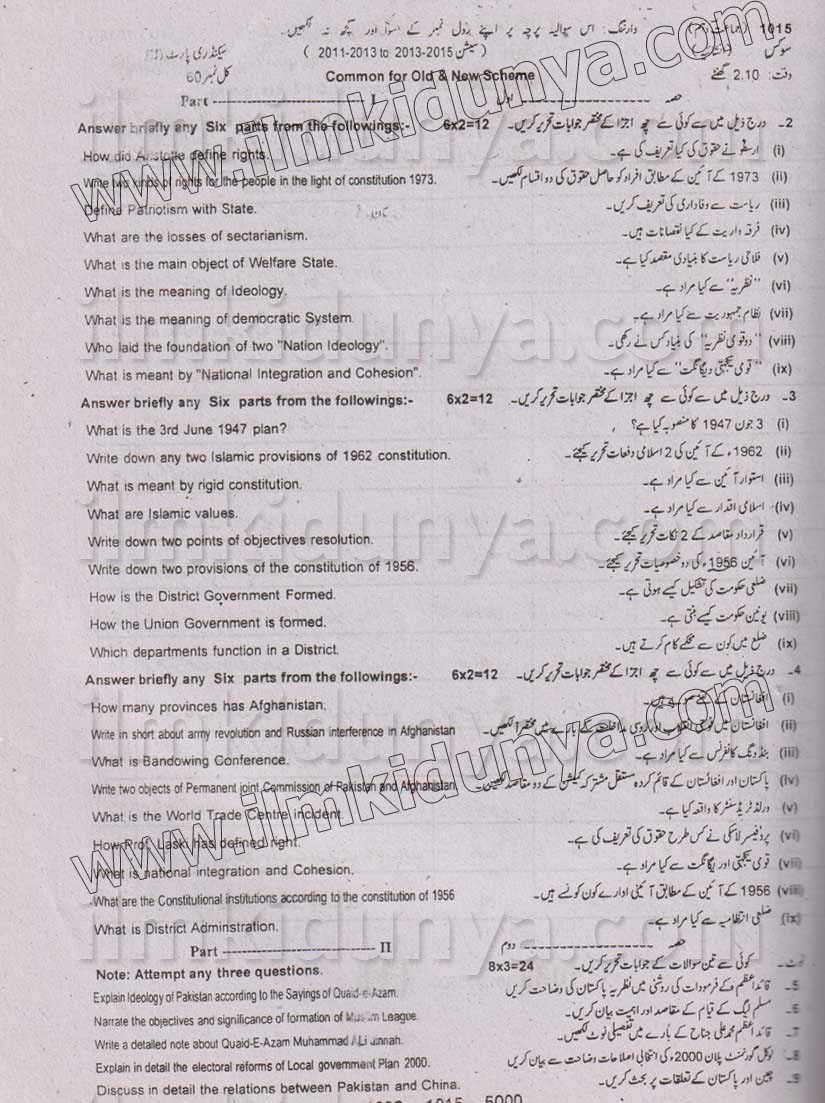 1015 (جماعت دہم) وارننگ: اس سوالیہ پرچہ پر اپنے رول نمبر کے سوا اور کچھ نہ لکھیں۔
سوکس (سیشن 2011-2013 to 2013-2015) سیکنڈری پارٹ
وقت: 2.10 گھنٹے Common for Old & New Scheme کل نمبر 60
Part I حصہ اول
Answer briefly any Six parts from the followings:- 6x2=12 2۔ درج ذیل میں سے کوئی سے چھ اجزا کے مختصر جوابات تحریر کریں۔
How did Aristotle define rights. (i) ارسطو نے حقوق کی کیا تعریف کی ہے۔
Write two kinds of rights for the people in the light of constitution 1973. (ii) 1973 کے آئین کے مطابق افراد کو حاصل حقوق کی دو اقسام لکھیں۔
Define Patriotism with State. (iii) ریاست سے وفاداری کی تعریف کریں۔
What are the losses of sectarianism. (iv) فرقہ واریت کے کیا نقصانات ہیں۔
What is the main object of Welfare State. (v) فلاحی ریاست کا بنیادی مقصد کیا ہے۔
What is the meaning of Ideology. (vi) "نظریہ" سے کیا مراد ہے۔
What is the meaning of democratic System. (vii) نظام جمہوریت سے کیا مراد ہے۔
Who laid the foundation of two "Nation Ideology". (viii) "دو قومی نظریہ" کی بنیاد کس نے رکھی۔
What is meant by "National Integration and Cohesion". (ix) "قومی یکجہتی و یگانگت" سے کیا مراد ہے۔
Answer briefly any Six parts from the followings:- 6x2=12 3۔ درج ذیل میں سے کوئی سے چھ اجزا کے مختصر جوابات تحریر کریں۔
What is the 3rd June 1947 plan? (i) 3 جون 1947 کا منصوبہ کیا ہے؟
Write down any two Islamic provisions of 1962 constitution. (ii) 1962ء کے آئین کی 2 اسلامی دفعات تحریر کیجئے۔
What is meant by rigid constitution. (iii) استوار آئین سے کیا مراد ہے۔
What are Islamic values. (iv) اسلامی اقدار سے کیا مراد ہے۔
Write down two points of objectives resolution. (v) قرارداد مقاصد کے 2 نکات تحریر کیجئے۔
Write down two provisions of the constitution of 1956. (vi) آئین 1956ء کی دو خصوصیات تحریر کیجئے۔
How is the District Government Formed. (vii) ضلعی حکومت کی تشکیل کیسے ہوتی ہے۔
How the Union Government is formed. (viii) یونین حکومت کیسے بنتی ہے۔
Which departments function in a District. (ix) ضلع میں کون سے محکمے کام کرتے ہیں۔
Answer briefly any Six parts from the followings:- 6x2=12 4۔ درج ذیل میں سے کوئی سے چھ اجزا کے مختصر جوابات تحریر کریں۔
How many provinces has Afghanistan. (i) افغانستان کے کتنے صوبے ہیں۔
Write in short about army revolution and Russian interference in Afghanistan (ii) افغانستان میں فوجی انقلاب اور روسی مداخلت کے بارے میں مختصراً لکھیں۔
What is Bandowing Conference. (iii) بنڈونگ کانفرنس سے کیا مراد ہے۔
Write two objects of Permanent joint Commission of Pakistan and Afghanistan. (iv) پاکستان اور افغانستان کے قائم کردہ مستقل مشترکہ کمیشن کے دو مقاصد لکھیں۔
What is the World Trade Centre incident. (v) ورلڈ ٹریڈ سنٹر کا واقعہ کیا ہے۔
How Prof. Laski has defined right. (vi) پروفیسر لاسکی نے کس طرح حقوق کی تعریف کی ہے۔
What is national integration and Cohesion. (vii) قومی یکجہتی اور یگانگت سے کیا مراد ہے۔
What are the Constitutional institutions according to the constitution of 1956 (viii) 1956 کے آئین کے مطابق آئینی ادارے کون کونسے ہیں۔
What is District Adminstration. (ix) ضلعی انتظامیہ سے کیا مراد ہے۔
Part II حصہ دوم
Note: Attempt any three questions. 8x3=24 نوٹ۔ کوئی سے تین سوالات کے جوابات تحریر کریں۔
Explain Ideology of Pakistan according to the Sayings of Quaid-e-Azam. 5۔ قائداعظمؒ کے فرمودات کی روشنی میں نظریہ پاکستان کی وضاحت کریں
Narrate the objectives and significance of formation of Muslim League. 6۔ مسلم لیگ کے قیام کے مقاصد اور اہمیت بیان کریں۔
Write a detailed note about Quaid-E-Azam Muhammad Ali Jinnah. 7۔ قائداعظم محمد علی جناح کے بارے میں تفصیلی نوٹ لکھیں۔
Explain in detail the electoral reforms of Local government Plan 2000. 8۔ لوکل گورنمنٹ پلان 2000ء کی انتخابی اصلاحات وضاحت سے بیان کریں
Discuss in detail the relations between Pakistan and China. 9۔ چین اور پاکستان کے تعلقات پر بحث کریں۔
1015 5000
www.ilmkidunya.com
ilmkidunya.com
ilmkidunya.com
ilmkidunya.com
www.ilmkidunya.com
ilmkidunya.com